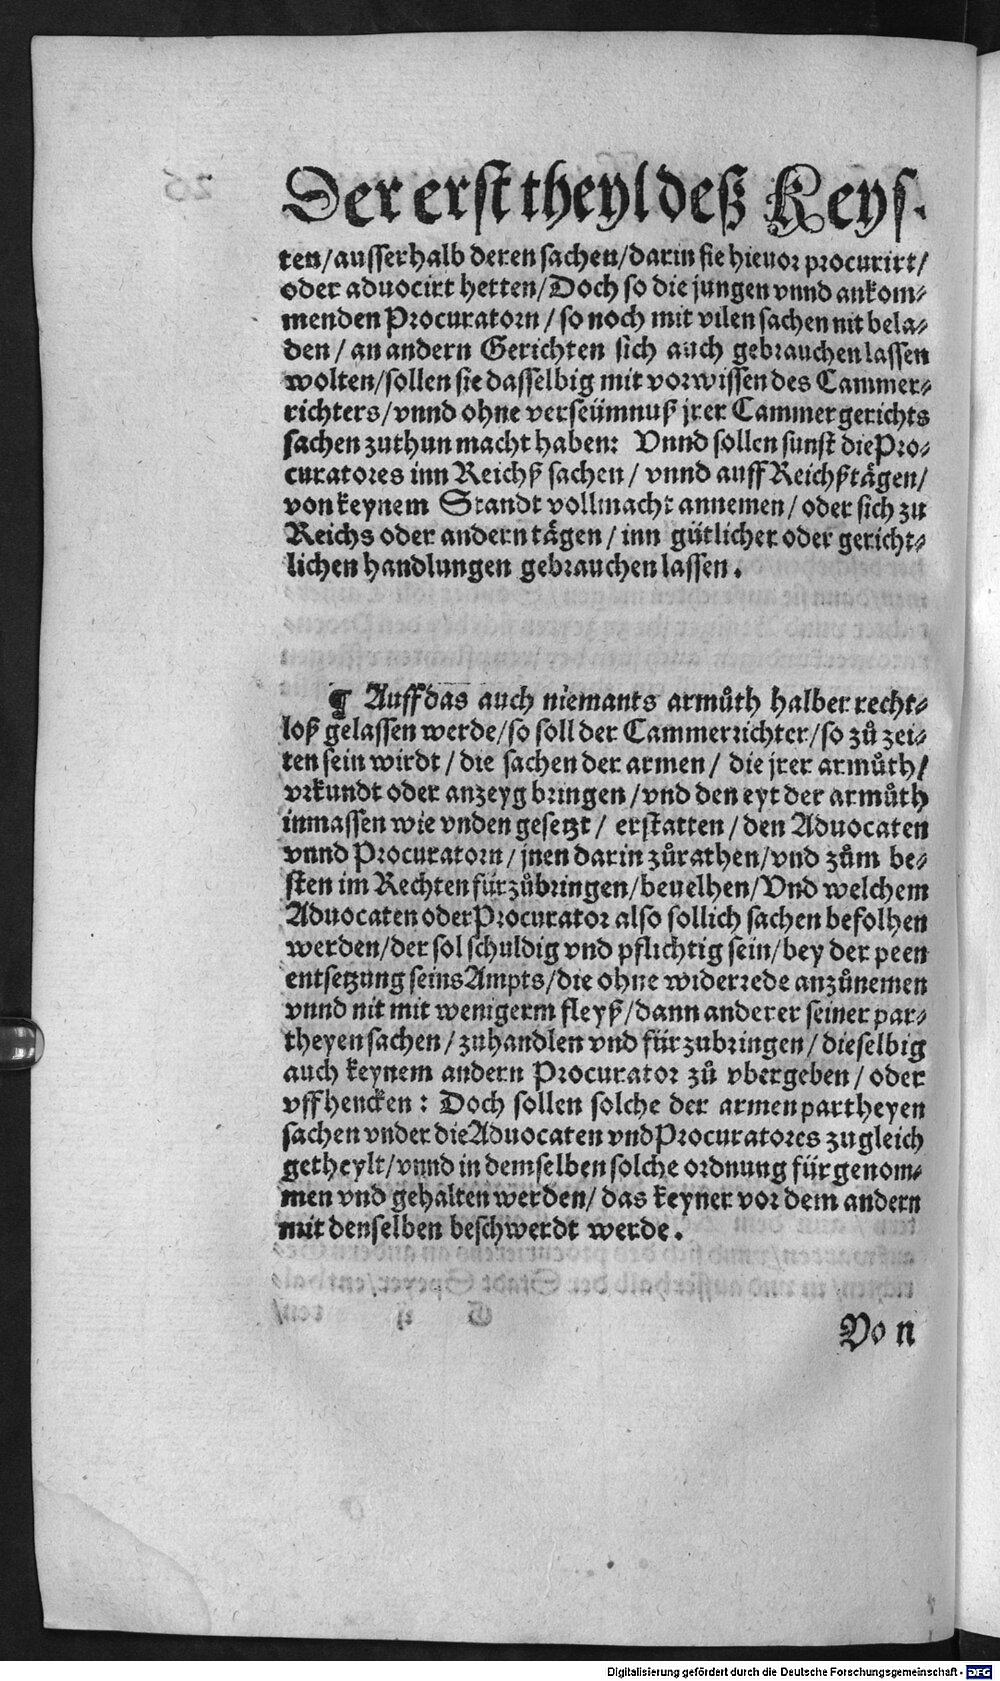 Der erst theyl deß Keys.
ten/ausserhalb deren sachen/darin sie hieuor procurirt/
oder aduocirt hetten/Doch so die jungen vnnd ankom⸗
menden Procuratorn/so noch mit vilen sachen nit bela⸗
den/an andern Gerichten sich auch gebrauchen lassen
wolten/sollen sie dasselbig mit vorwissen des Cammer⸗
richters/vnnd ohne verseümnuß jrer Cammergerichts
sachen zuthun macht haben: Vnnd sollen sunst die Pro⸗
curatores inn Reichß sachen/vnnd auff Reichßtägen/
von keynem Standt vollmacht annemen/oder sich zu
Reichs oder andern tägen/inn gütlicher oder gericht⸗
lichen handlungen gebrauchen lassen.
¶ Auff das auch niemants armůth halber recht⸗
loß gelassen werde/so soll der Cammerrichter/so zů zei⸗
ten sein wirdt/die sachen der armen/die jrer armůth/
vrkundt oder anzeyg bringen/vnd den eyt der armůth
inmassen wie vnden gesetzt/erstatten/den Aduocaten
vnnd Procuratorn/jnen darin zůrathen/vnd zům be⸗
sten im Rechten fürzůbringen/beuelhen/Vnd welchem
Aduocaten oder Procurator also sollich sachen befolhen
werden/der sol schuldig vnd pflichtig sein/bey der peen
entsetzung seins Ampts/die ohne widerrede anzůnemen
vnnd nit mit wenigerm fleyß/dann anderer seiner par⸗
theyen sachen/zuhandlen vnd fürzubringen/dieselbig
auch keynem andern Procurator zů vbergeben/oder
vffhencken: Doch sollen solche der armen partheyen
sachen vnder die Aduocaten vnd Procuratores zugleich
getheylt/vnnd in demselben solche ordnung fürgenom⸗
men vnd gehalten werden/das keyner vor dem andern
mit denselben beschwerdt werde.
Von
Digitalisierung gefördert durch die Deutsche Forschungsgemeinschaft - DFG